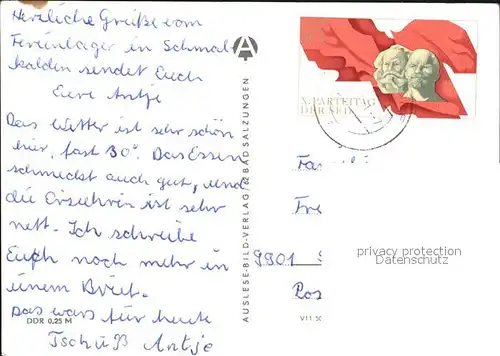 Herzliche Grüße vom
Ferienlager in Schmal
kalden sendet Euch
Eure Antje
Das Wetter ist sehr schön
hier, fast 30°. Das Essen
schmeckt auch gut, und
die Erzieherin ist sehr
nett. Ich schreibe
Euch noch mehr in
einem Brief.
Das wars für heute
Tschüß Antje
DDR 0,25 M
AUSLESE-BILD-VERLAG BAD SALZUNGEN
X. PARTEITAG
DER SED
Fa
Fre
9901
Pos
V 11 50
privacy protection
Datenschutz